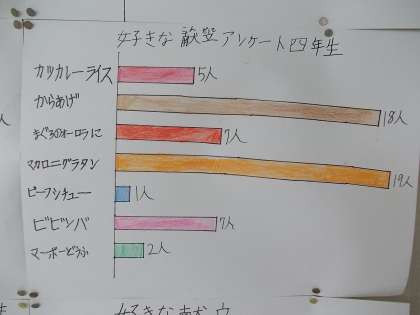 好きな献立アンケート四年生
カツカレーライス 5人
からあげ 18人
まぐろのオーロラに 7人
マカロニグラタン 19人
ビーフシチュー 1人
ビビンバ 7人
マーボーどうふ 2人
人
好きな献立